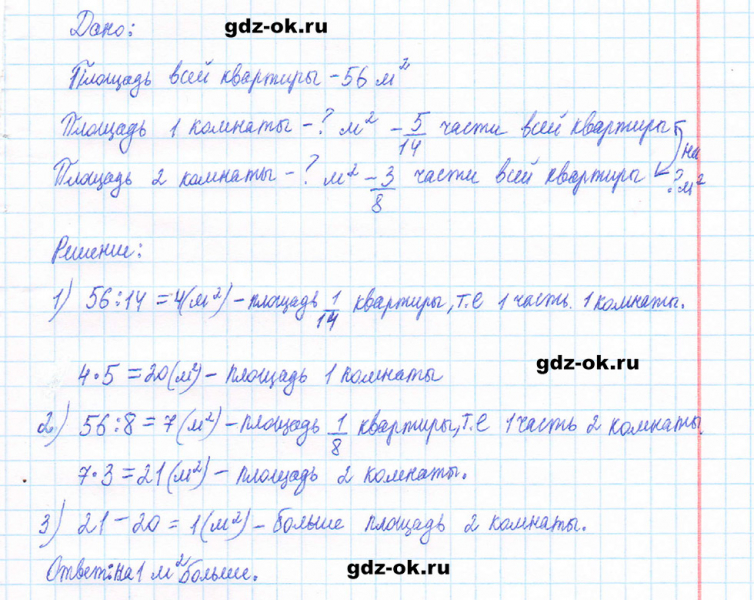 Дано: gdz-ok.ru
Площадь всей квартиры - 56 м²
Площадь 1 комнаты - ? м² - 5/14 части всей квартиры
на ? м²
Площадь 2 комнаты - ? м² - 3/8 части всей квартиры
Решение:
1) 56:14=4(м²) - площадь 1/14 квартиры, т.е 1 часть 1 комнаты.
gdz-ok.ru
4•5=20(м²) - площадь 1 комнаты
2) 56:8=7(м²) - площадь 1/8 квартиры, т.е 1 часть 2 комнаты.
7•3=21(м²) - площадь 2 комнаты.
3) 21-20=1(м²) - больше площадь 2 комнаты.
Ответ: на 1 м² больше.
gdz-ok.ru